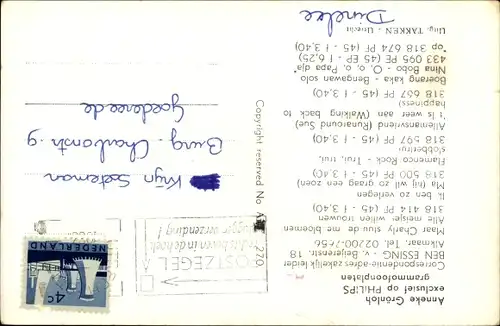 Anneke Grönloh
exclusief op PHILIPS
grammofoonplaten
Correspondentie-adres zakelijk leider:
BEN ESSING - v. Beijerenstr. 18
Alkmaar, Tel. 02200-7656
Maar Charly stuur me bloemen
Alle meisjes willen vrouwen
318 414 PF (45 - f 3,40)
Ik ben zo verlegen
Ma (hij wil zo graag een zoen)
318 500 PF (45 - f 3,40)
Flamenco Rock - Trui, trui,
slobbertrui
318 597 PF (45 - f 3,40)
Allemansvriend (Runaround Sue)
't Is weer aan (Walking back to
happiness)
318 657 PF (45 - f 3,40)
Boerong kaka - Bengawan solo
Nina Bobo - O, o, o, Papa dja
433 095 PE (45 EP - f 6,25)
op 318 674 PF (45 - f 3,40)
Uitg. TAKKEN - Utrecht
Copyright reserved No AX 270
POSTZEGEL
in de hoek
verzending!
NEDERLAND
4c
Krijn Soeteman
Burg.
Goedereede
Dinelee